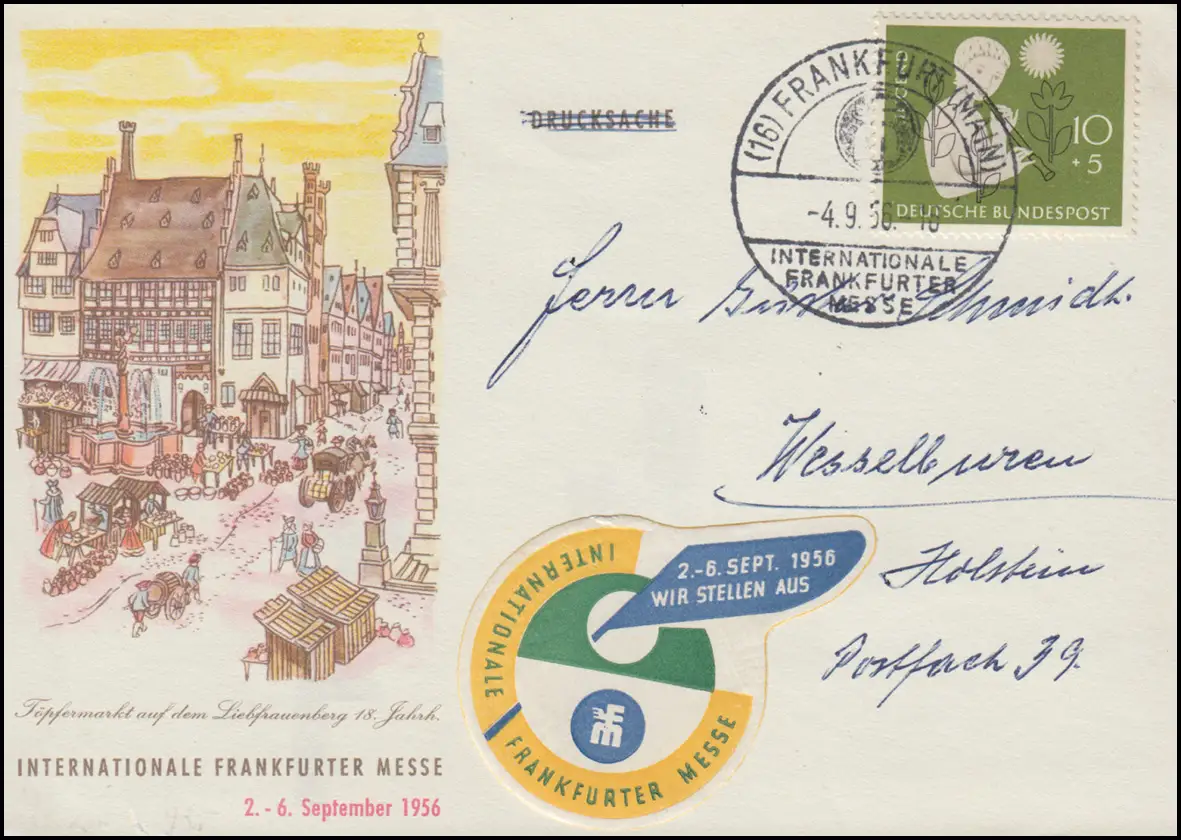 DRUCKSACHE
(16) FRANKFURT (MAIN)
-4.9.56.-18
INTERNATIONALE
FRANKFURTER
MESSE
10
+5
DEUTSCHE BUNDESPOST
Herrn Schmidt.
Wesselburen
Holstein
Postfach 39.
2.-6. SEPT. 1956
WIR STELLEN AUS
INTERNATIONALE
FRANKFURTER MESSE
Töpfermarkt auf dem Liebfrauenberg 18. Jahrh.
INTERNATIONALE FRANKFURTER MESSE
2.-6. September 1956